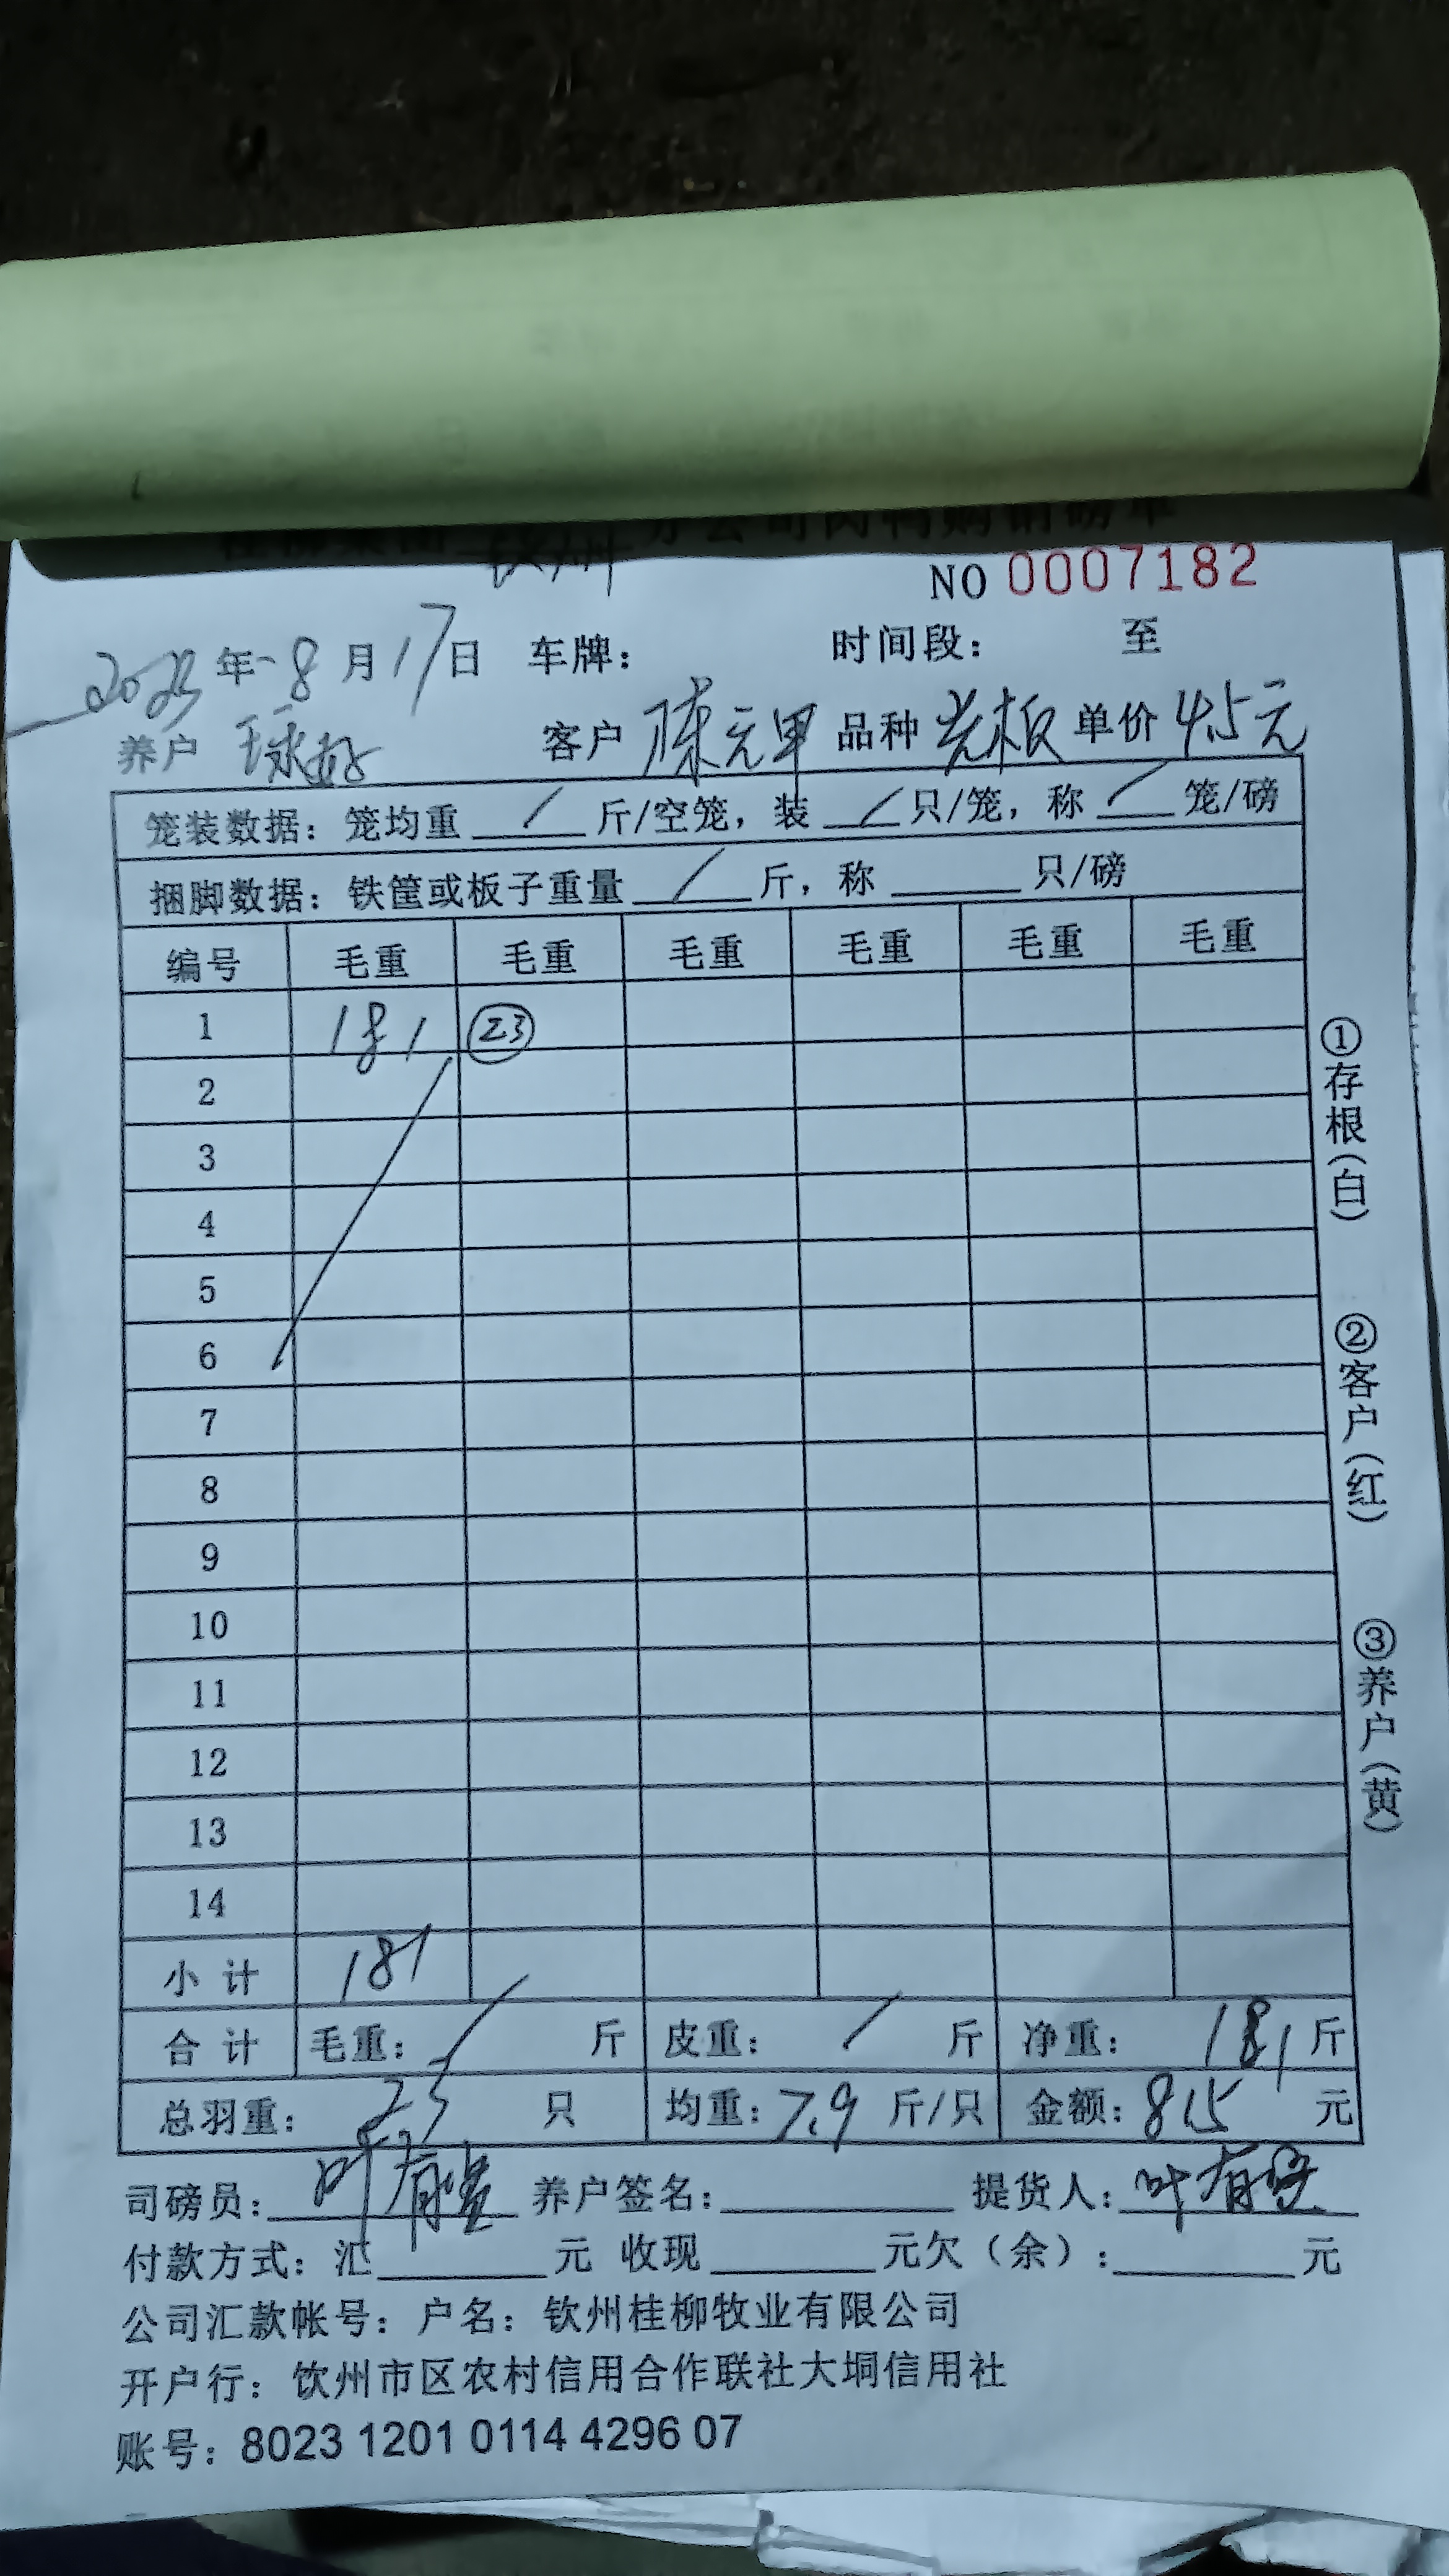 NO 0007182
2023年-8月17日 车牌： 时间段： 至
养户 客户 陈元甲 品种 光板 单价 4.5元
笼装数据：笼均重 / 斤/空笼，装 / 只/笼，称 / 笼/磅
捆脚数据：铁筐或板子重量 / 斤，称 只/磅
编号 毛重 毛重 毛重 毛重 毛重 毛重
1 181 ㉓
2
3
4
5
6
7
8
9
10
11
12
13
14
小计 181
合计 毛重： / 斤 皮重： / 斤 净重： 181 斤
总羽重： 23 只 均重：7.9 斤/只 金额：815 元
司磅员：叶有 养户签名： 提货人：叶有
付款方式：汇 元 收现 元欠（余）： 元
公司汇款帐号：户名：钦州桂柳牧业有限公司
开户行：钦州市区农村信用合作联社大垌信用社
账号：8023 1201 0114 4296 07
①存根（白）
②客户（红）
③养户（黄）